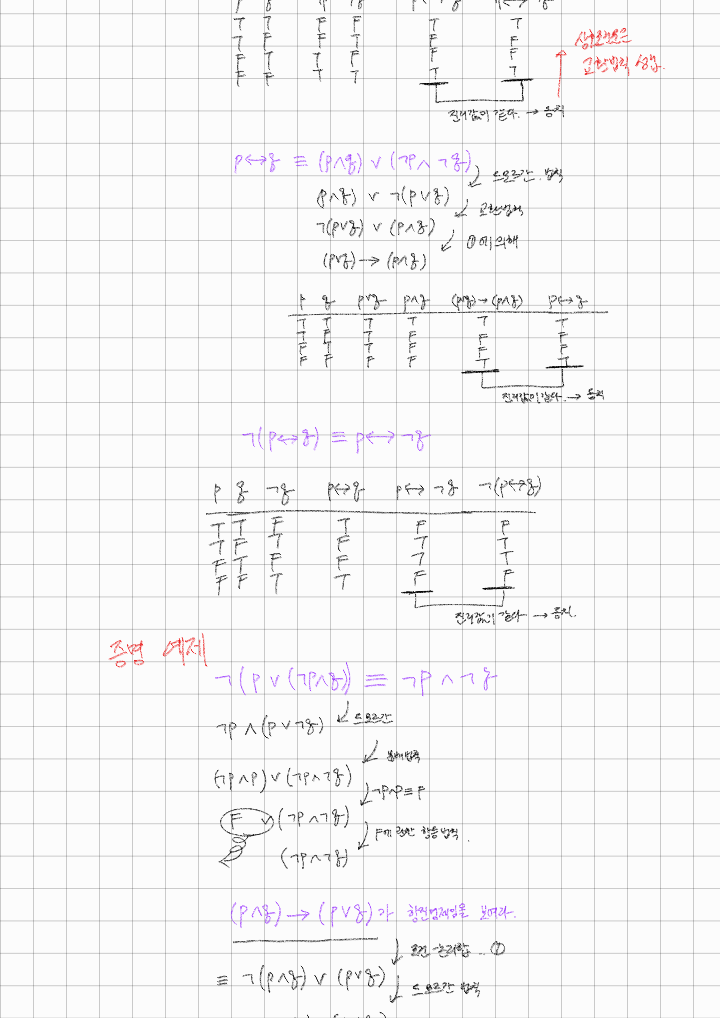 T T F F T T
T F F T F F
F T T F F F
F F T T T T
상호조건은
교환법칙 성립.
진리값이 같다. → 동치
p↔q ≡ (p∧q) ∨ (¬p∧¬q)
드모르간 법칙
(p∧q) ∨ ¬(p∨q)
교환법칙
¬(p∨q) ∨ (p∧q)
①에 의해
(p∨q) → (p∧q)
p q p∨q p∧q (p∨q)→(p∧q) p↔q
T T T T T T
T F T F F F
F T T F F F
F F F F T T
진리값이 같다. → 동치
¬(p↔q) ≡ p↔¬q
p q ¬q p↔q p↔¬q ¬(p↔q)
T T F T F F
T F T F T T
F T F F T T
F F T T F F
진리값이 같다 → 동치.
증명 예제
¬(p∨(¬p∧q)) ≡ ¬p∧¬q
드모르간
¬p∧(p∨¬q)
분배법칙
(¬p∧p)∨(¬p∧¬q)
¬p∧p≡F
F ∨(¬p∧¬q)
F에 관한 항등법칙.
(¬p∧¬q)
(p∧q)→(p∨q)가 항진명제임을 보여라.
조건-논리합 .. ①
≡ ¬(p∧q)∨(p∨q)
드모르간 법칙